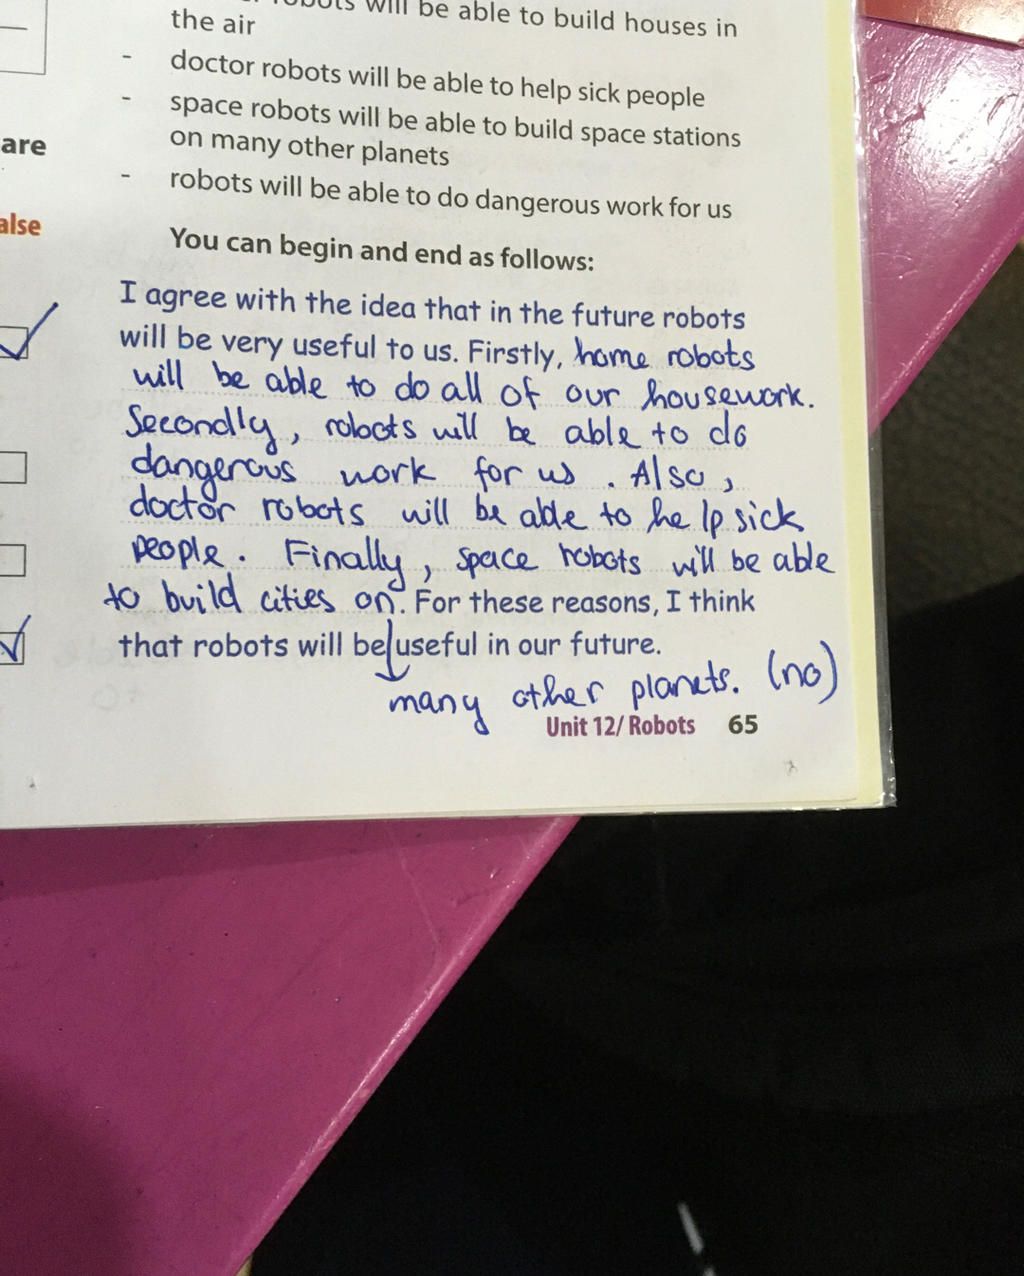 robots will be able to build houses in
the air
- doctor robots will be able to help sick people
- space robots will be able to build space stations
on many other planets
- robots will be able to do dangerous work for us
are
alse
You can begin and end as follows:
I agree with the idea that in the future robots
will be very useful to us. Firstly, home robots
will be able to do all of our housework.
Secondly, robots will be able to do
dangerous work for us. Also,
doctor robots will be able to help sick
people. Finally, space robots will be able
to build cities on. For these reasons, I think
that robots will be useful in our future.
many other planets. (no)
Unit 12/ Robots 65